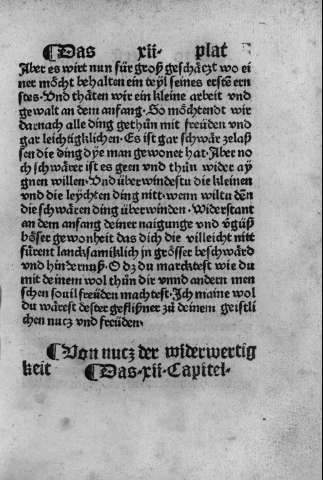 ¶Das xii· plat
Aber es wirt nun für groß geschätzt wo ei
ner möcht behalten ein teyl seines erstē ern
stes·Und thäten wir ein kleine arbeit vnd
gewalt an dem anfang·So möchtendt wir
darnach alle ding gethůn mit freüden vnd
gar leichtigklichen·Es ist gar schwär zelaß
sen die ding dye man gewonet hat·Aber no
ch schwärer ist es geen vnd thůn wider ay
gnen willen·Und überwindestu die kleinen
vnd die leychten ding nitt·wenn wiltu dēn
die schwären ding überwinden·Widerstant
an dem anfang deiner naigunge vnd v̈güß
böser gewonheit das dich die villeicht nitt
fürent landksamiklich in grösser beschwärd
vnd hindernuß·O dz du marcktest wie du
mit deinem wol thůn dir vnnd andern men
schen souil freüden machtest·Ich maine wol
du wärest dester geflißner zů deinem geistli
chen nucz vnd freüden·
¶Von nucz der widerwertig
keit ¶Das·xii·Capitel·